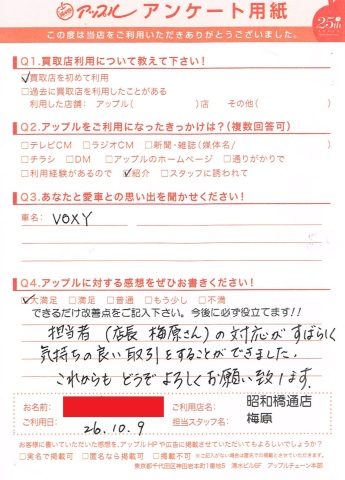 アップル アンケート用紙
25th
この度は当店をご利用いただきありがとうございました。
Q1.買取店利用について教えて下さい!
☑買取店を初めて利用
□過去に買取店を利用したことがある
利用した店舗: アップル( )店 その他( )
Q2.アップルをご利用になったきっかけは?(複数回答可)
□テレビCM □ラジオCM □新聞・雑誌(媒体名/ )
□チラシ □DM □アップルのホームページ □通りがかりで
□利用経験があるので ☑紹介 □スタッフに誘われて
Q3.あなたと愛車との思い出を聞かせください!
車名: VOXY
Q4.アップルに対する感想をぜひお書きください!
☑大満足 □満足 □普通 □もう少し □不満
できるだけ改善点をご記入下さい。今後に必ず役立てます!!
担当者(店長 梅原さん)の対応がすばらしく
気持ちの良い取引をすることができました。
これからも どうぞ よろしくお願い致します。
お名前: ご利用店名: 昭和橋通店
ご利用日: 26.10.9 担当スタッフ名: 梅原
お客様に書いていただいた感想を、アップルHPや広告に掲載させていただいてもよろしいでしょうか?
□実名で掲載可 □匿名なら掲載可 □掲載不可 ※ご記入がない場合は匿名での掲載とさせていただきます。
東京都千代田区神田岩本町1番地5 清水ビル6F アップルチェーン本部